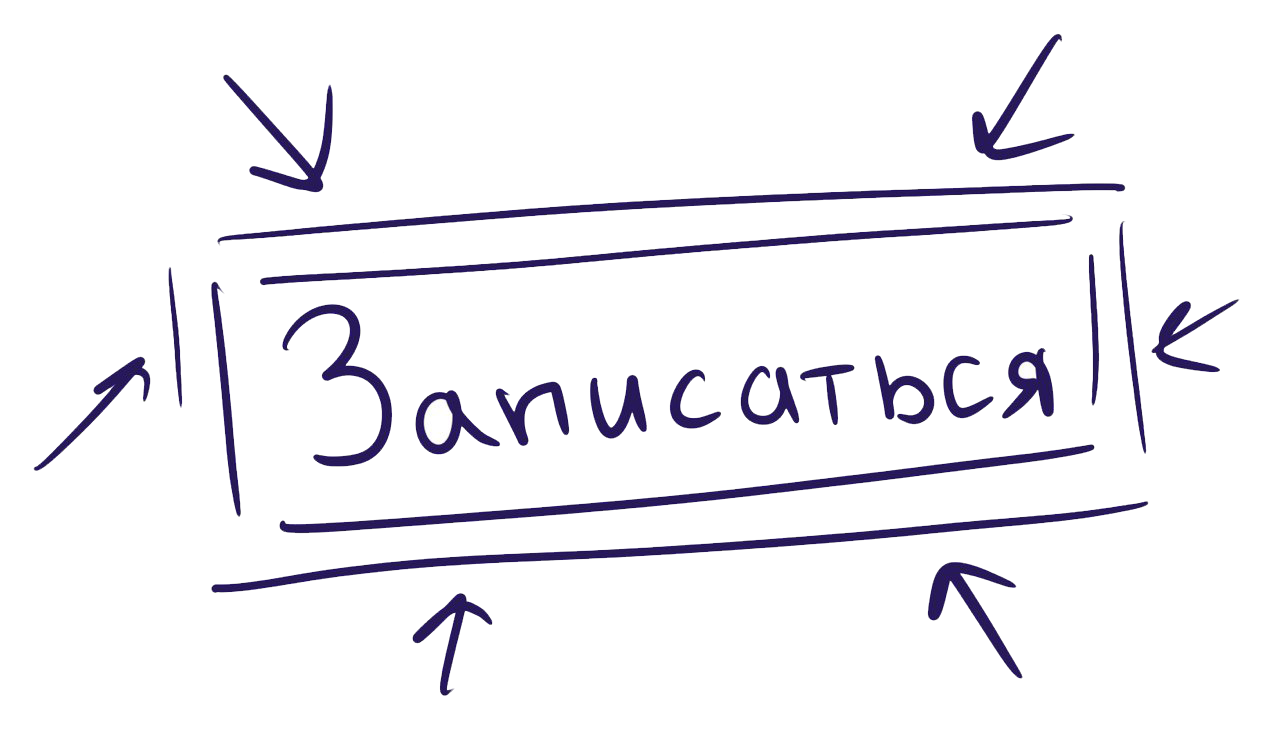 Записаться